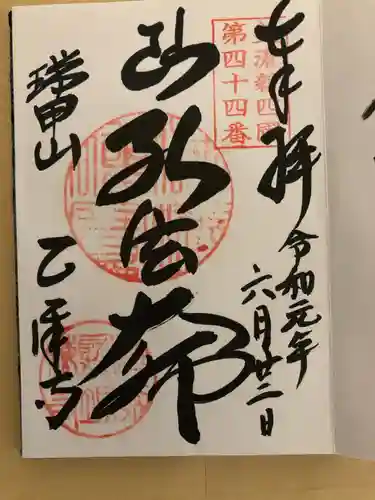 奉拝
美濃新四國
第四十四番
令和元年
六月廿二日
弘法大師
瑞甲山
乙津寺